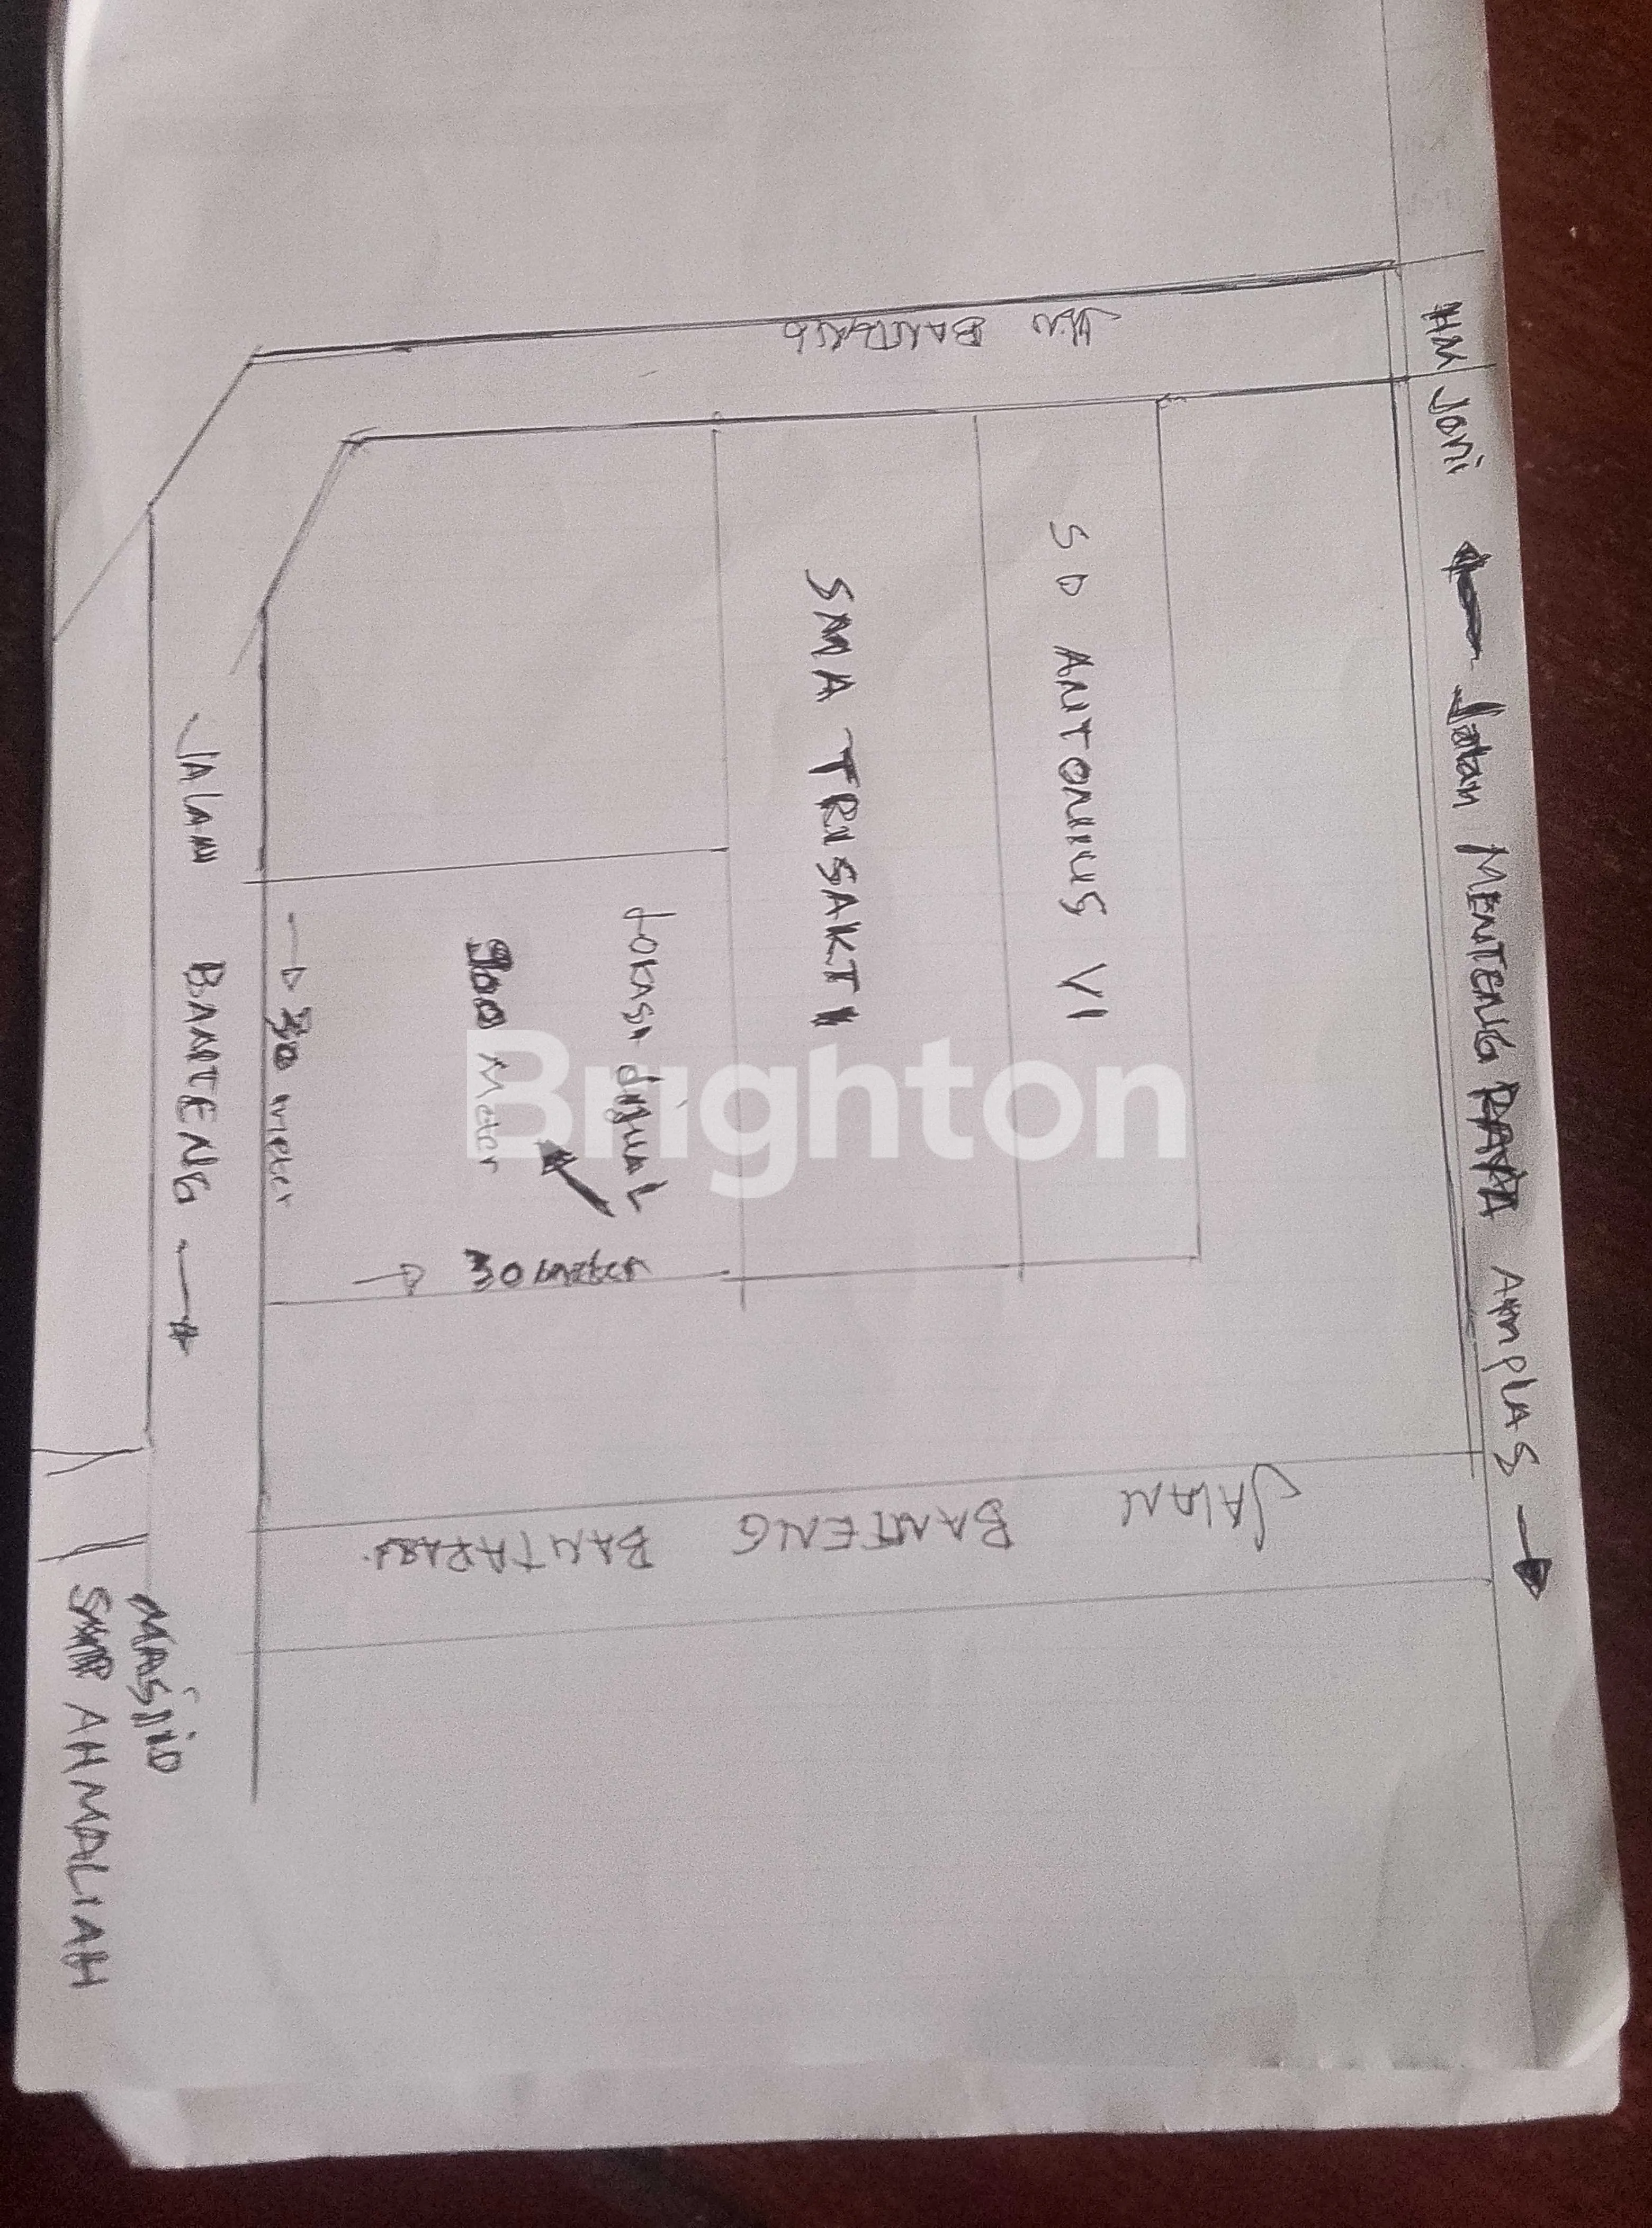 HM Joni ← Jalan MENTENG RAYA AMPLAS →
JLN BANTENG
SD ANTONIUS VI
SMA TRISAKTI
Lokasi dijual
900 Meter
30 meter
30 meter
JALAN BANTENG →
JALAN BANTENG BANTARAN
MASJID
SMP AHMALIAH
Brighton